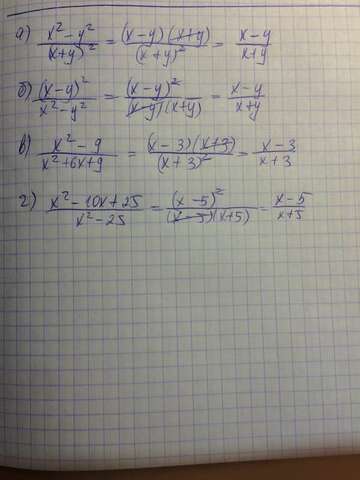 а) (x² - y²)/(x+y)² = (x-y)(x+y)/(x+y)² = (x-y)/(x+y)
б) (x-y)²/(x² - y²) = (x-y)²/(x-y)(x+y) = (x-y)/(x+y)
в) (x² - 9)/(x²+6x+9) = (x-3)(x+3)/(x+3)² = (x-3)/(x+3)
г) (x² - 10x + 25)/(x² - 25) = (x-5)²/(x-5)(x+5) = (x-5)/(x+5)